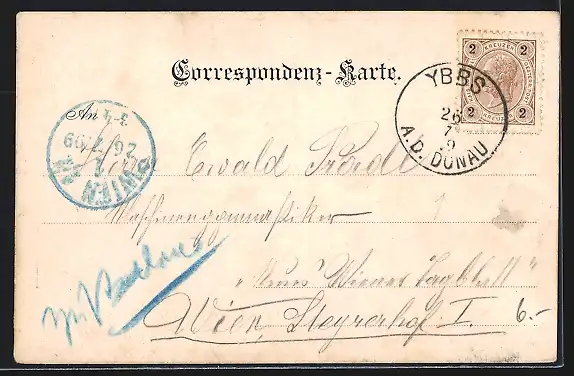 Correspondenz-Karte.
2 KREUZER 2
2 KREUZER 2
YBBS
26
7
9
A. D. DONAU
An
3-4
26 7 99
WIEN
Herrn
Ewald
Maschinengymnastiker
"Neues Wiener Tagblatt"
Wien, Steyrerhof I.
6.-